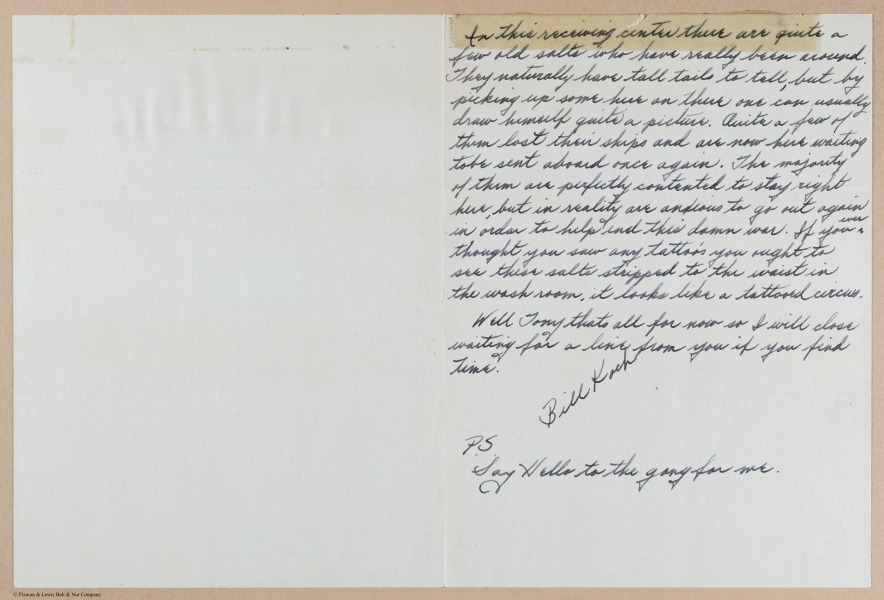 In this receiving center there are quite a
few old salts who have really been around.
They naturally have tall tails to tell, but by
picking up some here an there one can usually
draw himself quite a picture. Quite a few of
them lost their ships and are now here waiting
tobe sent aboard once again. The majority
of them are perfectly contented to stay right
here, but in reality are anxious to go out again
in order to help end this damn war. If you ever
thought you saw any tattoos you ought to
see these salts stripped to the waist in
the wash room, it looks like a tattooed circus.
Well Tony thats all for now so I will close
waiting for a line from you if you find
time.
Bill Koch
P.S
Say Hello to the gang for me.
© Pixeum & Lewis Bolt & Nut Company